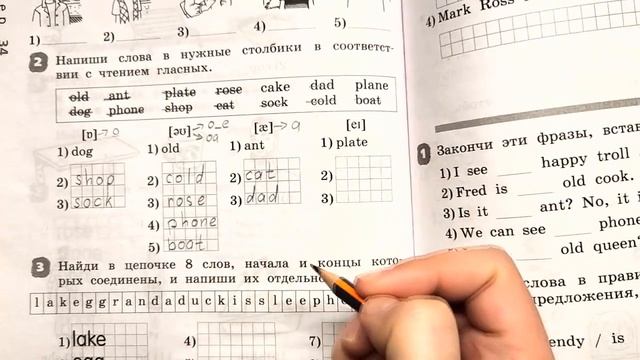 1) 2) 3) 4) 5)
2 Напиши слова в нужные столбики в соответст-
вии с чтением гласных.
old ant plate rose cake dad plane
dog phone shop cat sock cold boat
[ɒ]→o [əʊ]→o_e →oa [æ]→a [eɪ]
1) dog 1) old 1) ant 1) plate
2) shop 2) cold 2) cat 2)
3) sock 3) rose 3) dad 3)
4) phone
5) boat
3 Найди в цепочке 8 слов, начала и концы кото-
рых соединены, и напиши их отдельно
lakeggrandaduckissleeph
1) lake 4) 7)
4) Mark Ross
1 Закончи эти фразы, встав
1) I see happy troll
2) Fred is old cook.
3) Is it ant? No, it i
4) We can see phone
old queen?
слова в прави
предложения,
endy / is
34